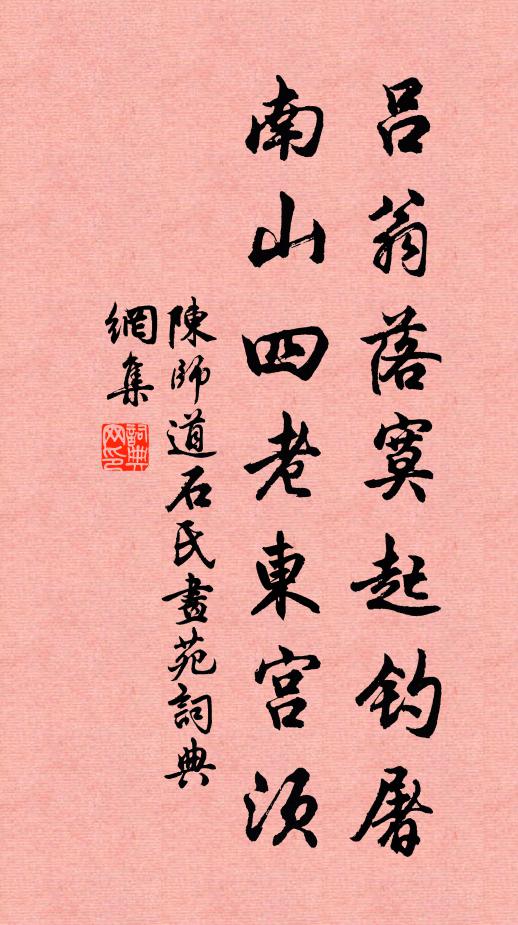 吕翁落寞起钓屠
南山四老東宫须
陳師道石氏畫苑詞典
網集
詞典网印